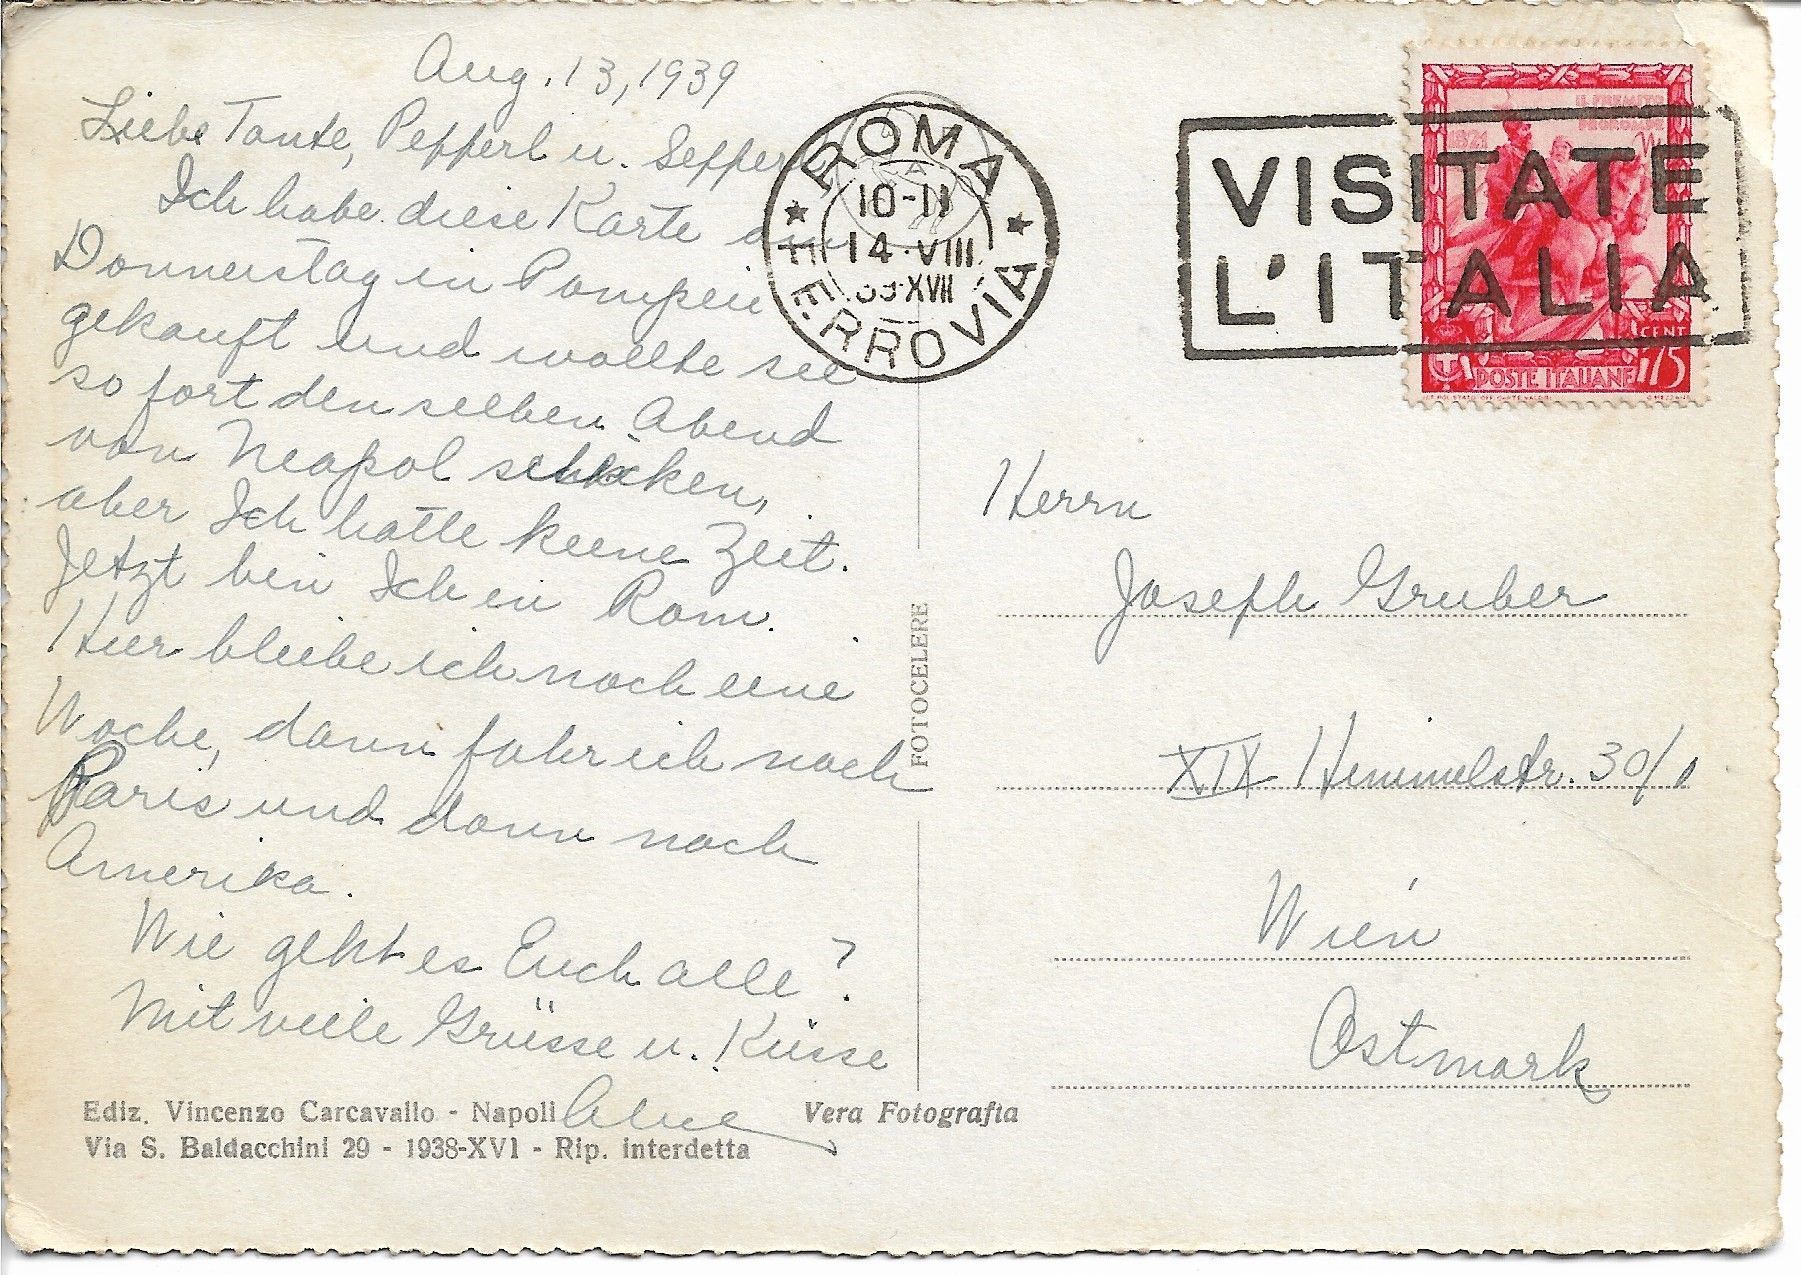 Aug. 13, 1939
Liebe Tante, Pepperl u. Sepperl
Ich habe diese Karte am
Donnerstag in Pompeii
gekauft und wollte sie
sofort den selben Abend
von Neapol schicken,
aber Ich hatte keine Zeit.
Jetzt bin Ich in Rom.
Hier bleibe ich noch eine
Woche, dann fahr ich nach
Paris und dann nach
Amerika.
Wie geht es Euch alle?
Mit viele Grüsse u. Küsse
Ediz. Vincenzo Carcavallo - Napoli
Vera Fotografia
Via S. Baldacchini 29 - 1938-XVI - Rip. interdetta
FOTOCELERE
ROMA
10-11
14·VIII
39·XVII
FERROVIA
VISITATE
L'ITALIA
CENT
POSTE ITALIANE 75
Herrn
Joseph Gruber
XIX Himmelstr. 30/1
Wien
Ostmark